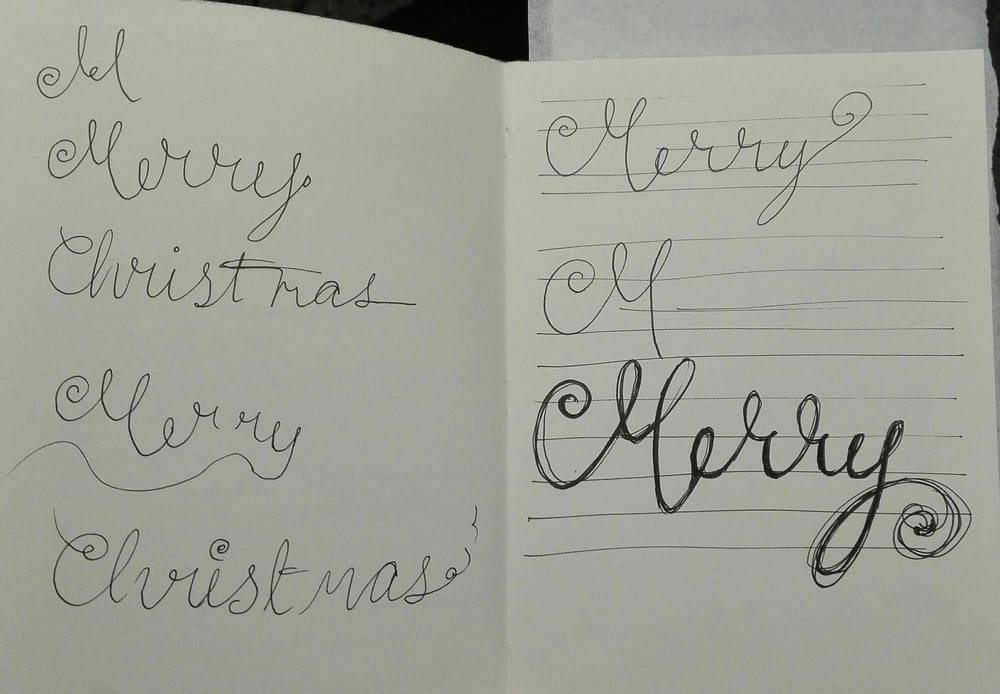 M
Merry
Christmas
Merry
Christmas
Merry
M
Merry